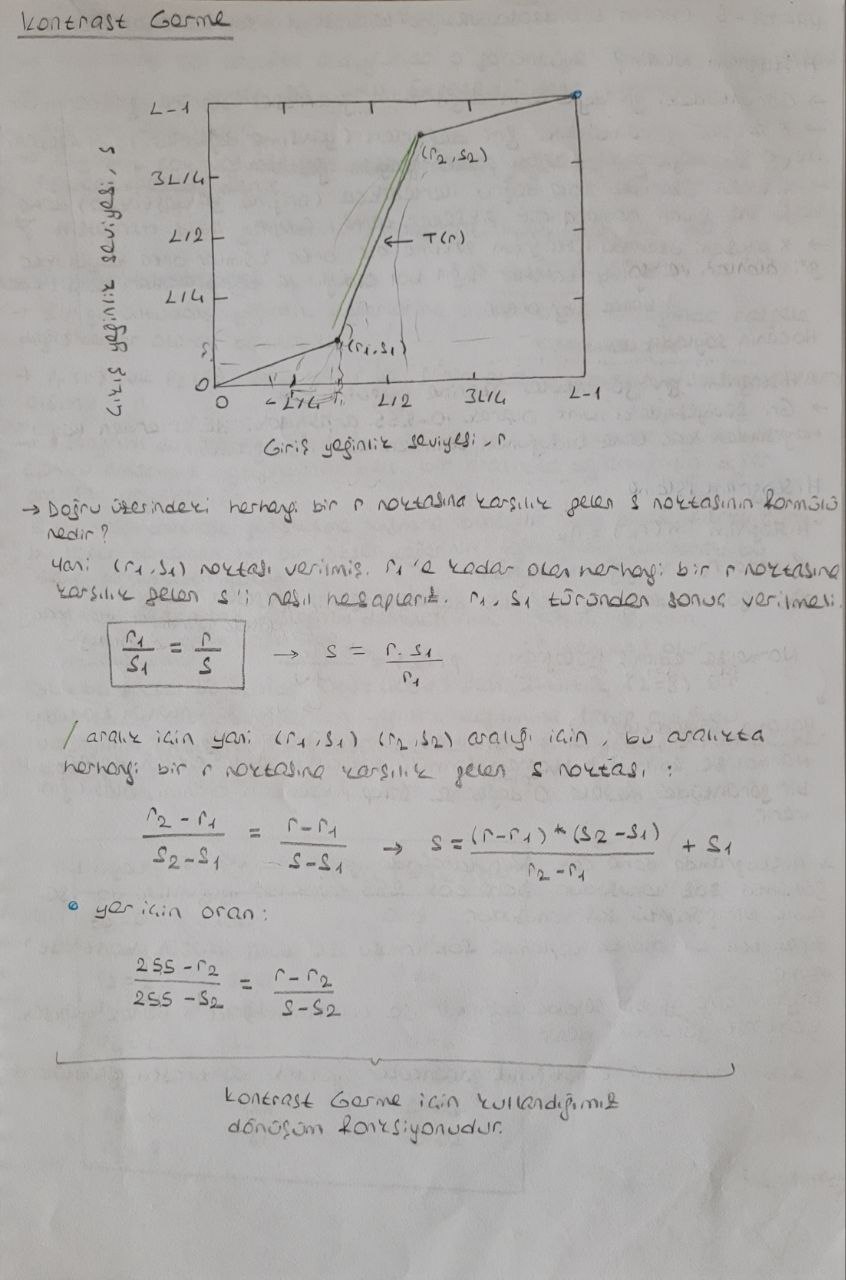 Kontrast Germe
L-1
3L/4
L/2
L/4
0
Giriş yeğinlik seviyesi, s
(r2, s2)
← T(r)
(r1, s1)
s
0
L/4
r1
L/2
3L/4
L-1
Giriş yeğinlik seviyesi, r
→ Doğru üzerindeki herhangi bir r noktasına karşılık gelen s noktasının formülü
nedir?
Yani (r1, s1) noktası verilmiş. r1'e kadar olan herhangi bir r noktasına
karşılık gelen s'i nasıl hesaplarız. r1, s1 türünden sonuç verilmesi.
r1/s1 = r/s → s = r.s1/r1
/ aralık için yani (r1, s1) (r2, s2) aralığı için, bu aralıkta
herhangi bir r noktasına karşılık gelen s noktası:
r2-r1/s2-s1 = r-r1/s-s1 → s = (r-r1)*(s2-s1)/r2-r1 + s1
yer için oran:
255-r2/255-s2 = r-r2/s-s2
Kontrast Germe için kullandığımız
dönüşüm fonksiyonudur.